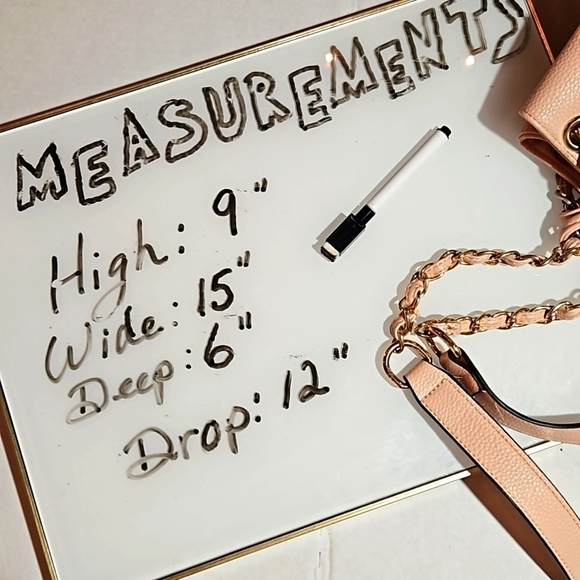 MEASUREMENTS
High: 9"
Wide: 15"
Deep: 6"
Drop: 12"